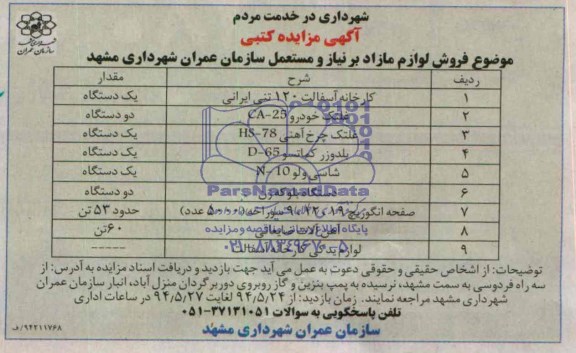 شهرداری در خدمت مردم
آگهی مزایده کتبی
موضوع فروش لوازم مازاد بر نیاز و مستعمل سازمان عمران شهرداری مشهد
ردیف شرح مقدار
۱ کارخانه آسفالت ۱۲۰ تنی ایرانی یک دستگاه
۲ غلتک خودرو CA-25 دو دستگاه
۳ غلتک چرخ آهنی HS-78 یک دستگاه
۴ بلدوزر کماتسو D-65 یک دستگاه
۵ شاسی ولو N-10 یک دستگاه
۶ دستگاه بلوکه زن دو دستگاه
۷ صفحه انگوریچ ۱۹، ۱۲، ۹ سوراخه حدود ۵۳ تن
۸ آهن آلات ضایعاتی ۶۰ تن
۹ لوازم یدکی کارخانه آسفالت -----
ParsNamadData
پایگاه اطلاع رسانی مناقصه و مزایده
۰۲۱-۸۸۳۴۹۶۷۰-۵
توضیحات: از اشخاص حقیقی و حقوقی دعوت به عمل می آید جهت بازدید و دریافت اسناد مزایده به آدرس: از
سه راه فردوسی به سمت مشهد، نرسیده به پمپ بنزین و گاز روبروی دوربرگردان منزل آباد، انبار سازمان عمران
شهرداری مشهد مراجعه نمایند. زمان بازدید: از ۹۴/۵/۲۴ لغایت ۹۴/۵/۲۷ در ساعات اداری
تلفن پاسخگویی به سوالات ۳۷۱۳۱۰۵۱-۰۵۱
سازمان عمران شهرداری مشهد
۹۴۲۱۱۷۶۸/ف